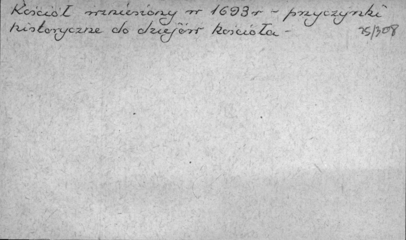 Kościół wzniesiony w 1693 r - przyczynki
historyczne do dziejów kościoła -
75/308